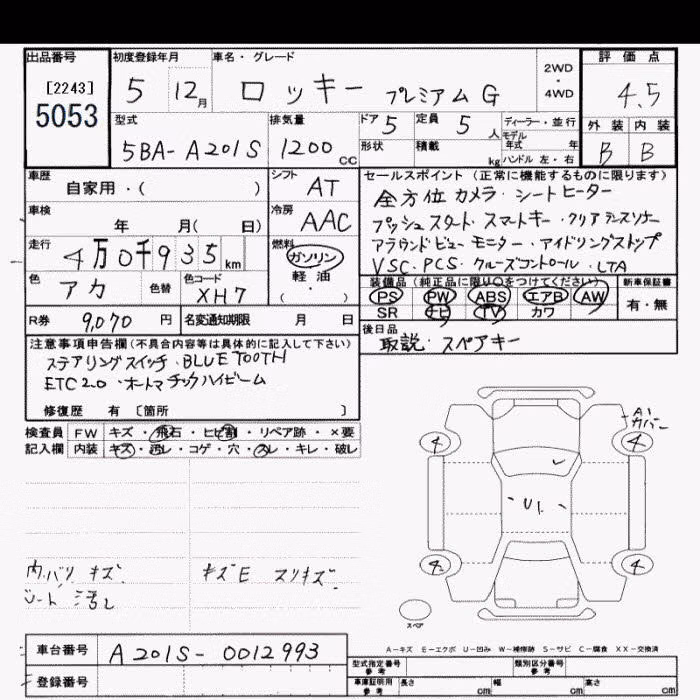 出品番号 初度登録年月 車名・グレード 評価点
[2243] 5 12月 ロッキー プレミアムG 2WD・4WD 4.5
5053
型式 排気量 ドア 5 定員 5 人 ディーラー・並行 外装 内装
5BA-A201S 1200 CC 形状 積載 kg モデル年式 年 B B
ハンドル 左・右
車歴 シフト セールスポイント(正常に機能するものに限ります)
自家用・( ) AT 全方位カメラ・シートヒーター
車検 冷房 プッシュスタート・スマートキー・クリアランスソナー
年 月(日) AAC アラウンドビューモニター・アイドリングストップ
走行 燃料 VSC・PCS・クルーズコントロール・LTA
4万0千935km ガソリン
軽油
・( )
色 色替 色コード 装備品(純正品に限り○をつけてください) 新車保証書
アカ XH7 PS PW ABS エアB AW 有・無
SR ナビ TV カワ
R券 9,070 円 名変通知期限 月 日 後日品
取説・スペアキー
注意事項申告欄(不具合内容等は具体的に記入して下さい)
ステアリングスイッチ・BLUETOOTH
ETC2.0・オートマチックハイビーム
修復歴 有 〔箇所 〕
検査員 FW キズ・飛石・ヒビ割・リペア跡・×要
記入欄 内装 キズ・汚レ・コゲ・穴・スレ・キレ・破レ
A1
カバー
4 4
U1
4 4
内バリ キズ キズE スリキズ
シート 汚レ
スペア
A-キズ E-エクボ U-凹み W-補修跡 S-サビ C-腐食 XX-交換済
車台番号 A201S-0012993
登録番号
型式指定番号 参考 類別区分番号 参考
車庫証明用 参考 長さ cm 幅 cm 高さ cm